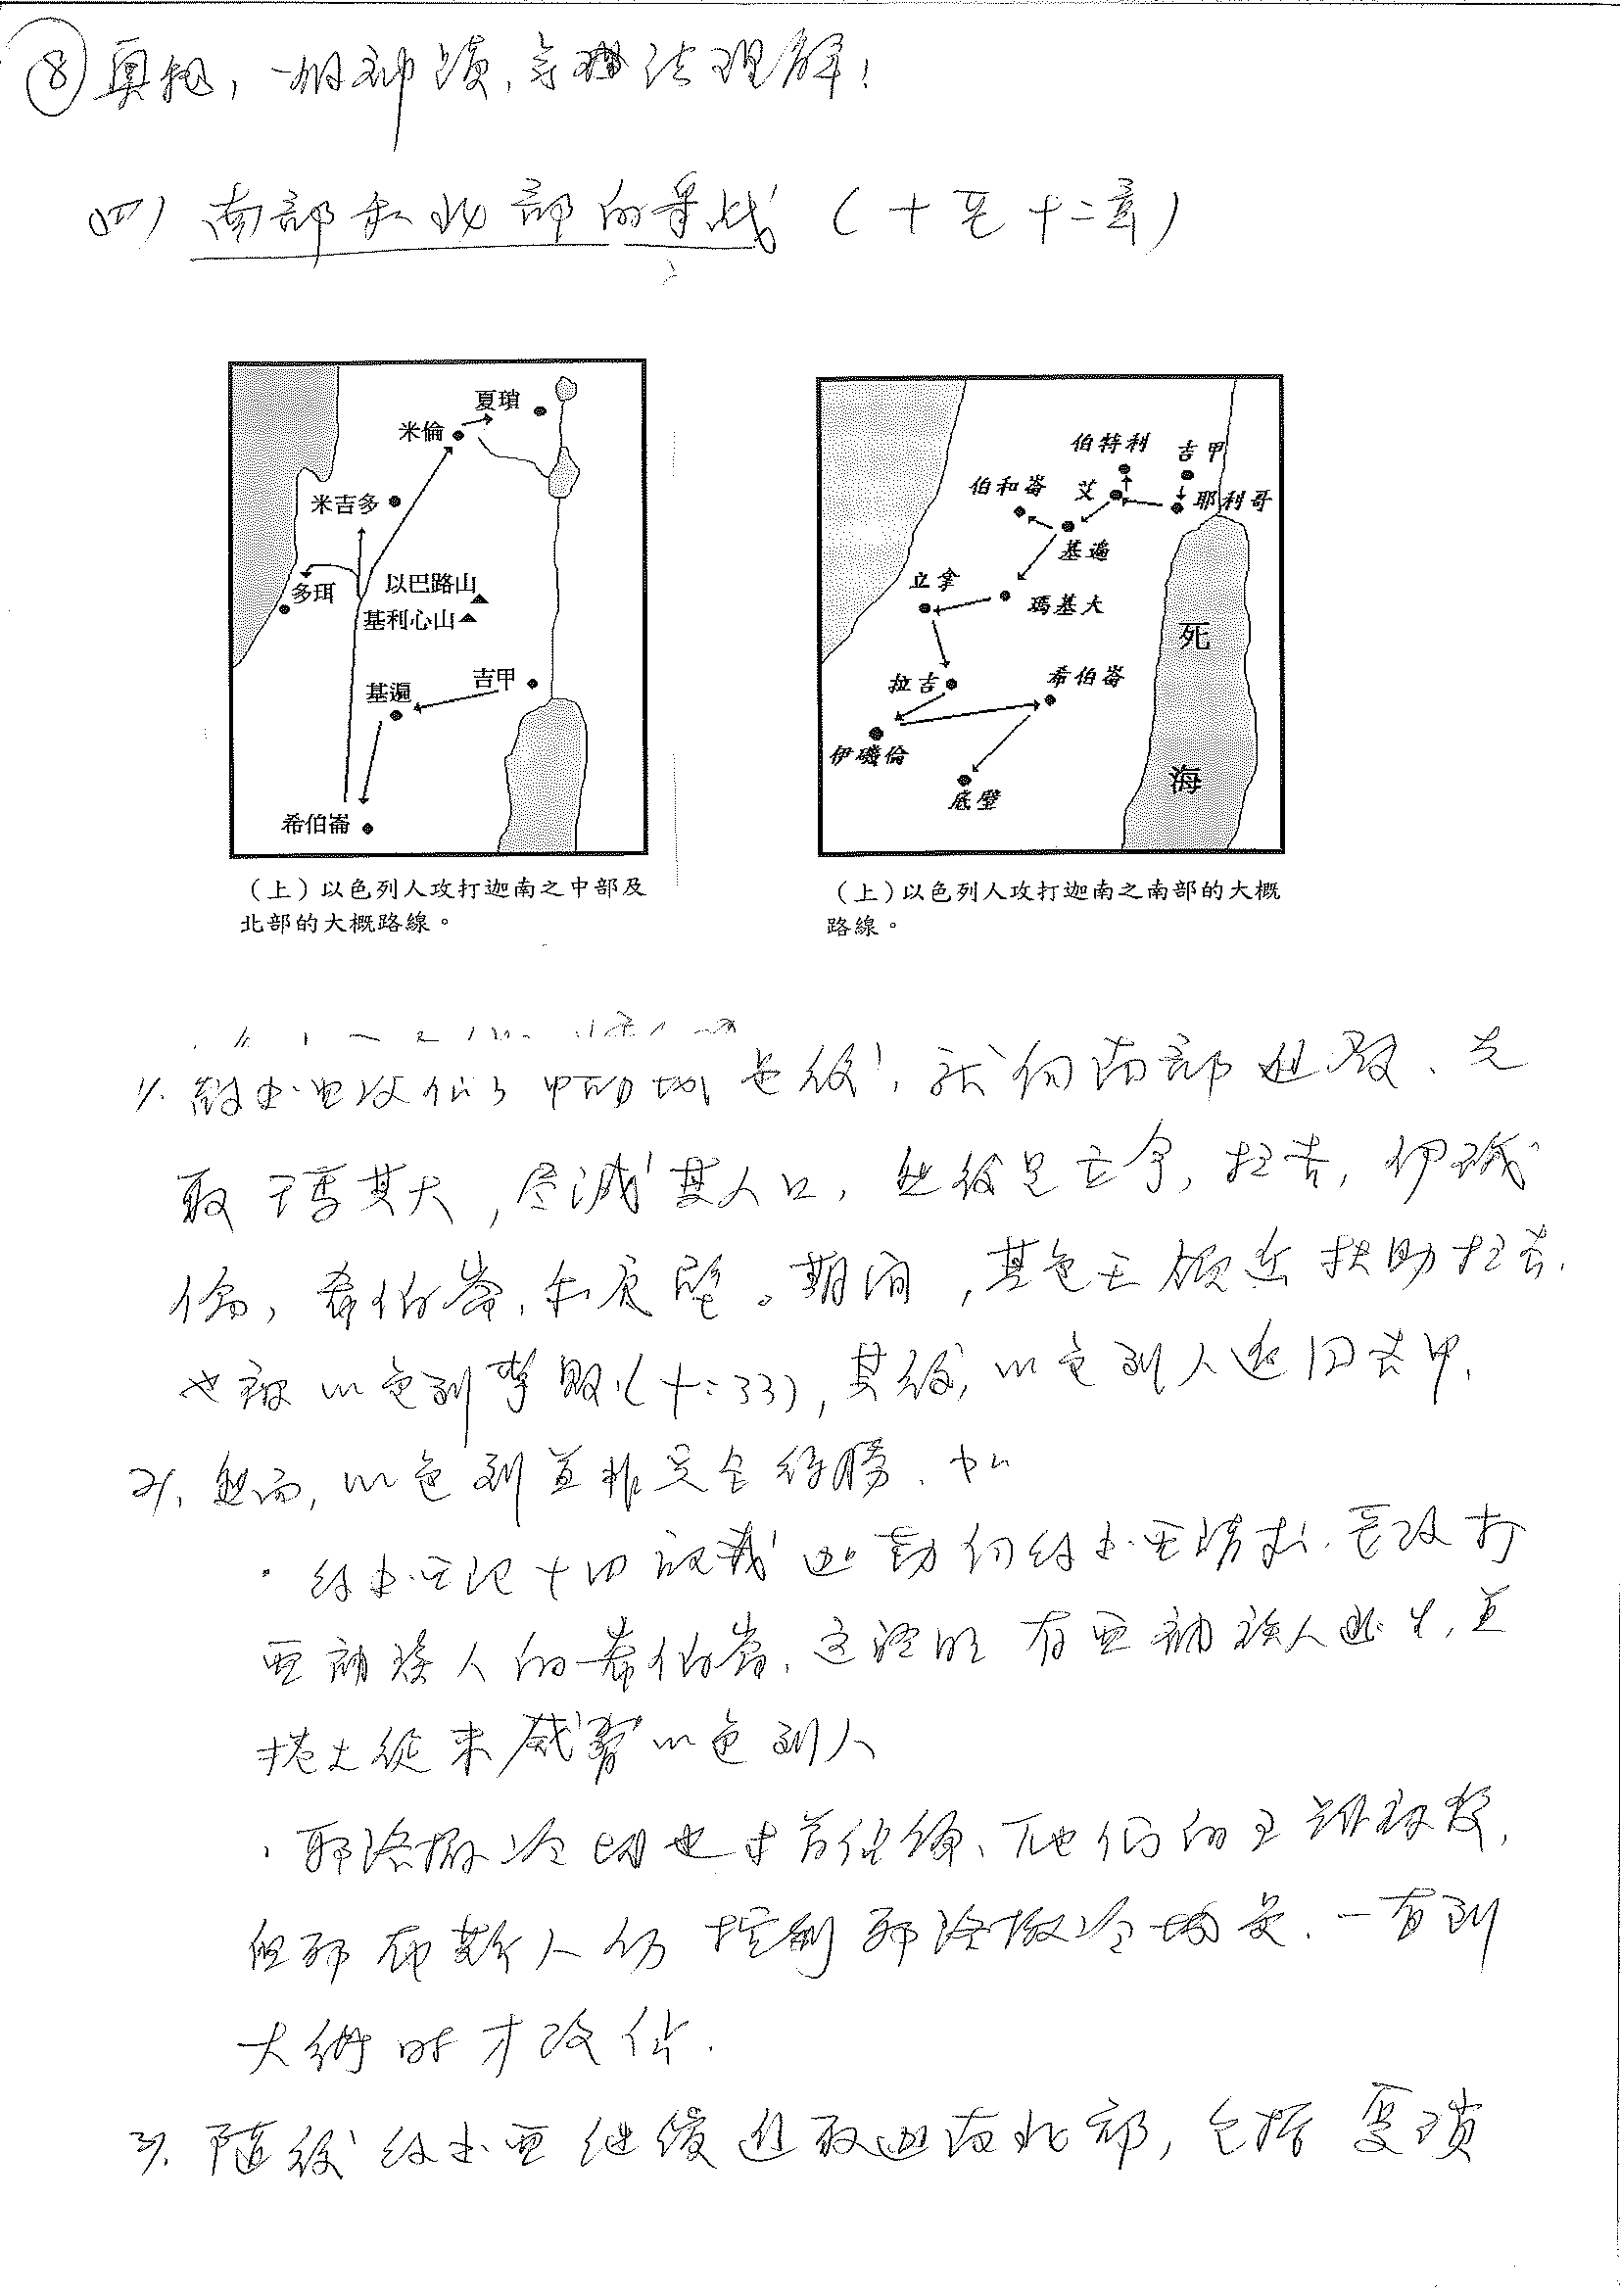 ⑧ 真相,一個神蹟,無法理解!
(四) 南部和北部的爭战 (十至十二章)
夏瑣
米倫
米吉多
多珥
以巴路山
基利心山
吉甲
基遍
希伯崙
(上)以色列人攻打迦南之中部及
北部的大概路線。
伯特利
吉甲
伯和崙
艾
耶利哥
基遍
立拿
瑪基大
拉吉
希伯崙
伊磯倫
底璧
死
海
(上)以色列人攻打迦南之南部的大概
路線。
1. 約书亚攻佔了中部城邑後,就向南部進取、先
取瑪基大,尽滅其人口,然後是立拿,拉吉,伊磯
倫,希伯崙,和底璧。期间,基色王願意扶助拉吉,
也被以色列擊敗(十:33),其後,以色列人返回吉甲.
2. 然而,以色列並非完全得勝、如
· 約书亚记十四記載迦勒向約书亚請求,去攻打
亚衲族人的希伯崙,这証明有亚衲族人逃生,並
捲土從来威脅以色列人
· 耶路撒冷也未曾佔領、他們的王雖被殺,
但耶布斯人仍控制耶路撒冷城邑.一直到
大衛时才攻佔.
3. 隨後約书亚继續進取迦南北部,包括夏瑣